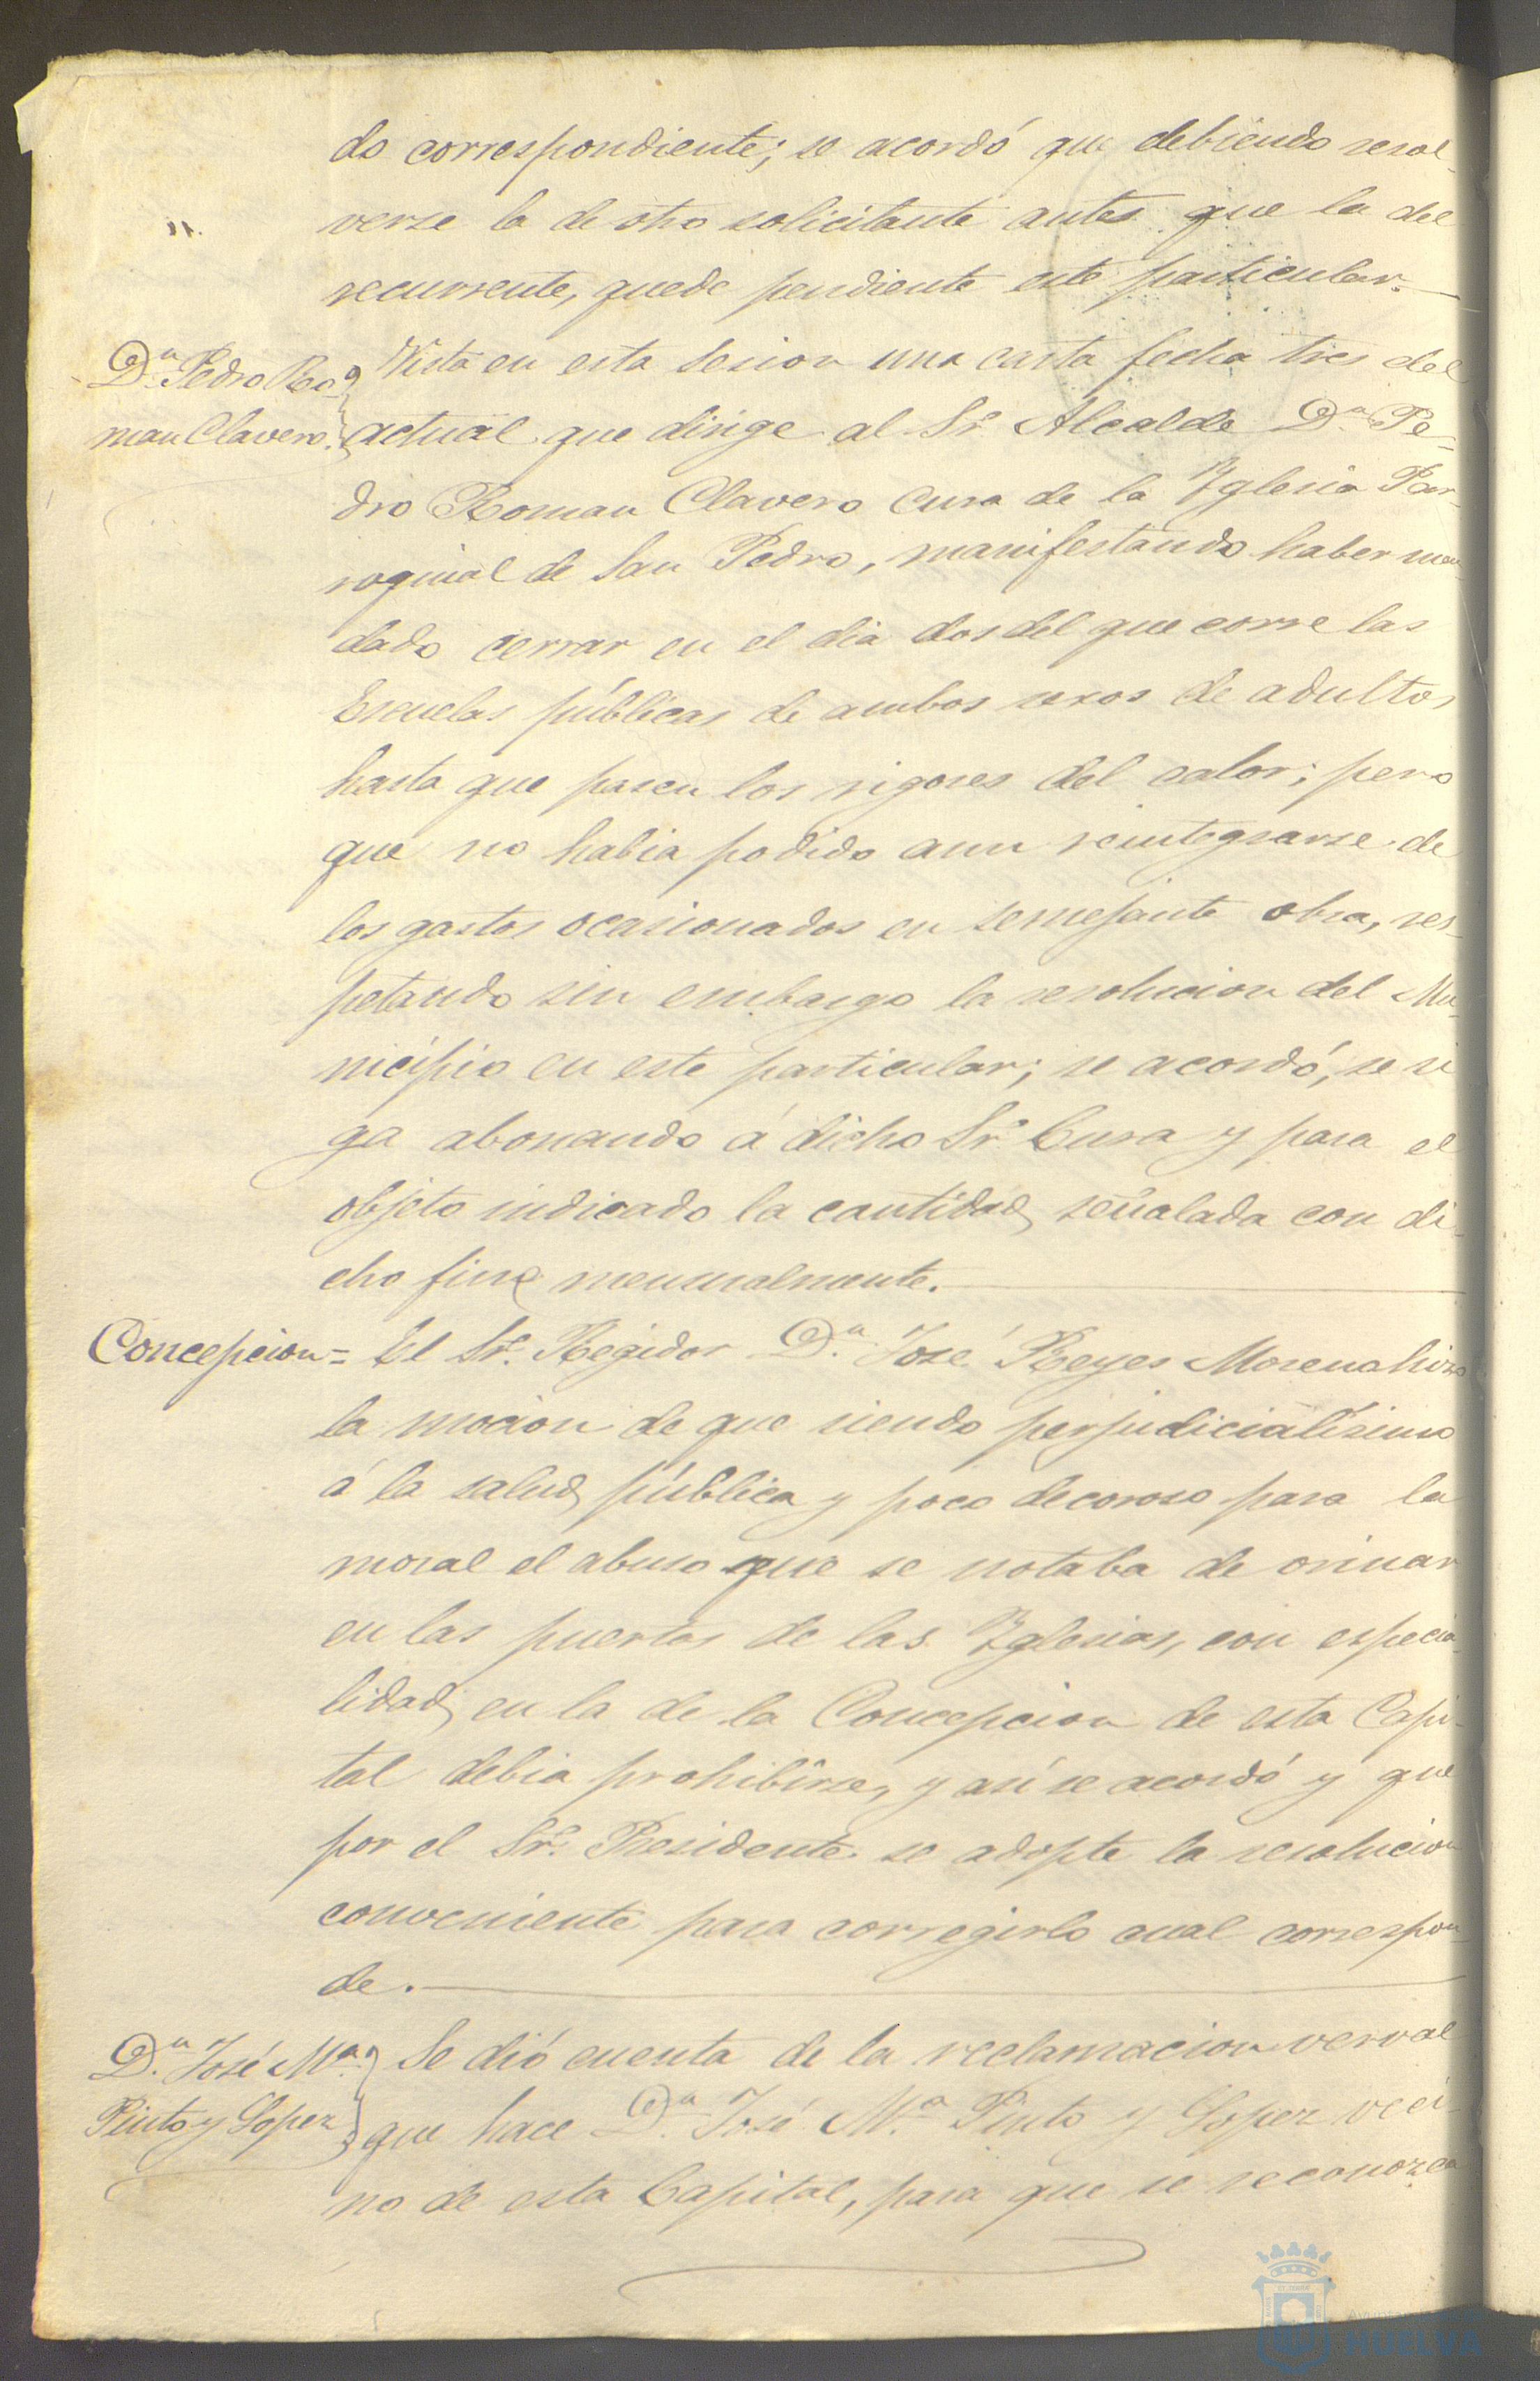 do correspondiente; se acordó que debiendo resol-
verse la de otro solicitante antes que la del
recurrente, quede pendiente este particular.
Dn. Pedro Ro-
man Clavero.
Vista en esta sesion una carta fecha tres del
actual que dirige al Sr. Alcalde Dn. Pe-
dro Roman Clavero Cura de la Yglesia Par-
roquial de San Pedro, manifestando haber man-
dado cerrar en el dia dos del que corre las
Escuelas públicas de ambos sexos de adultos
hasta que pasen los rigores del calor; pero
que no habia podido aun reintegrarse de
los gastos ocasionados en semejante obra, res-
petando sin embargo la resolucion del Mu-
nicipio en este particular; se acordó, se si
ga abonando á dicho Sr. Cura y para el
objeto indicado la cantidad señalada con di-
cho fin mensualmente.
Concepcion =
El Sr. Regidor Dn. José Reyes Morena hizo
la mocion de que siendo perjudicialísimo
á la salud pública y poco decoroso para la
moral el abuso que se notaba de orinar
en las puertas de las Yglesias, con especia-
lidad en la de la Concepcion de esta Capi-
tal debia prohibirse, y así se acordó y que
por el Sr. Presidente se adopte la resolucion
conveniente para corregirlo cual correspon
de.
Dn. José Ma.
Pinto y Lopez
Se dió cuenta de la reclamacion verval
que hace Dn. José Ma. Pinto y Lopez veci
no de esta Capital, para que se reconozca
HUELVA